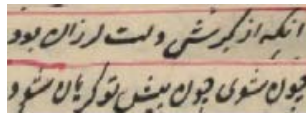 آنکه از کبرش دلت لرزان بود
چون شوی چون پیش تو گریان شود